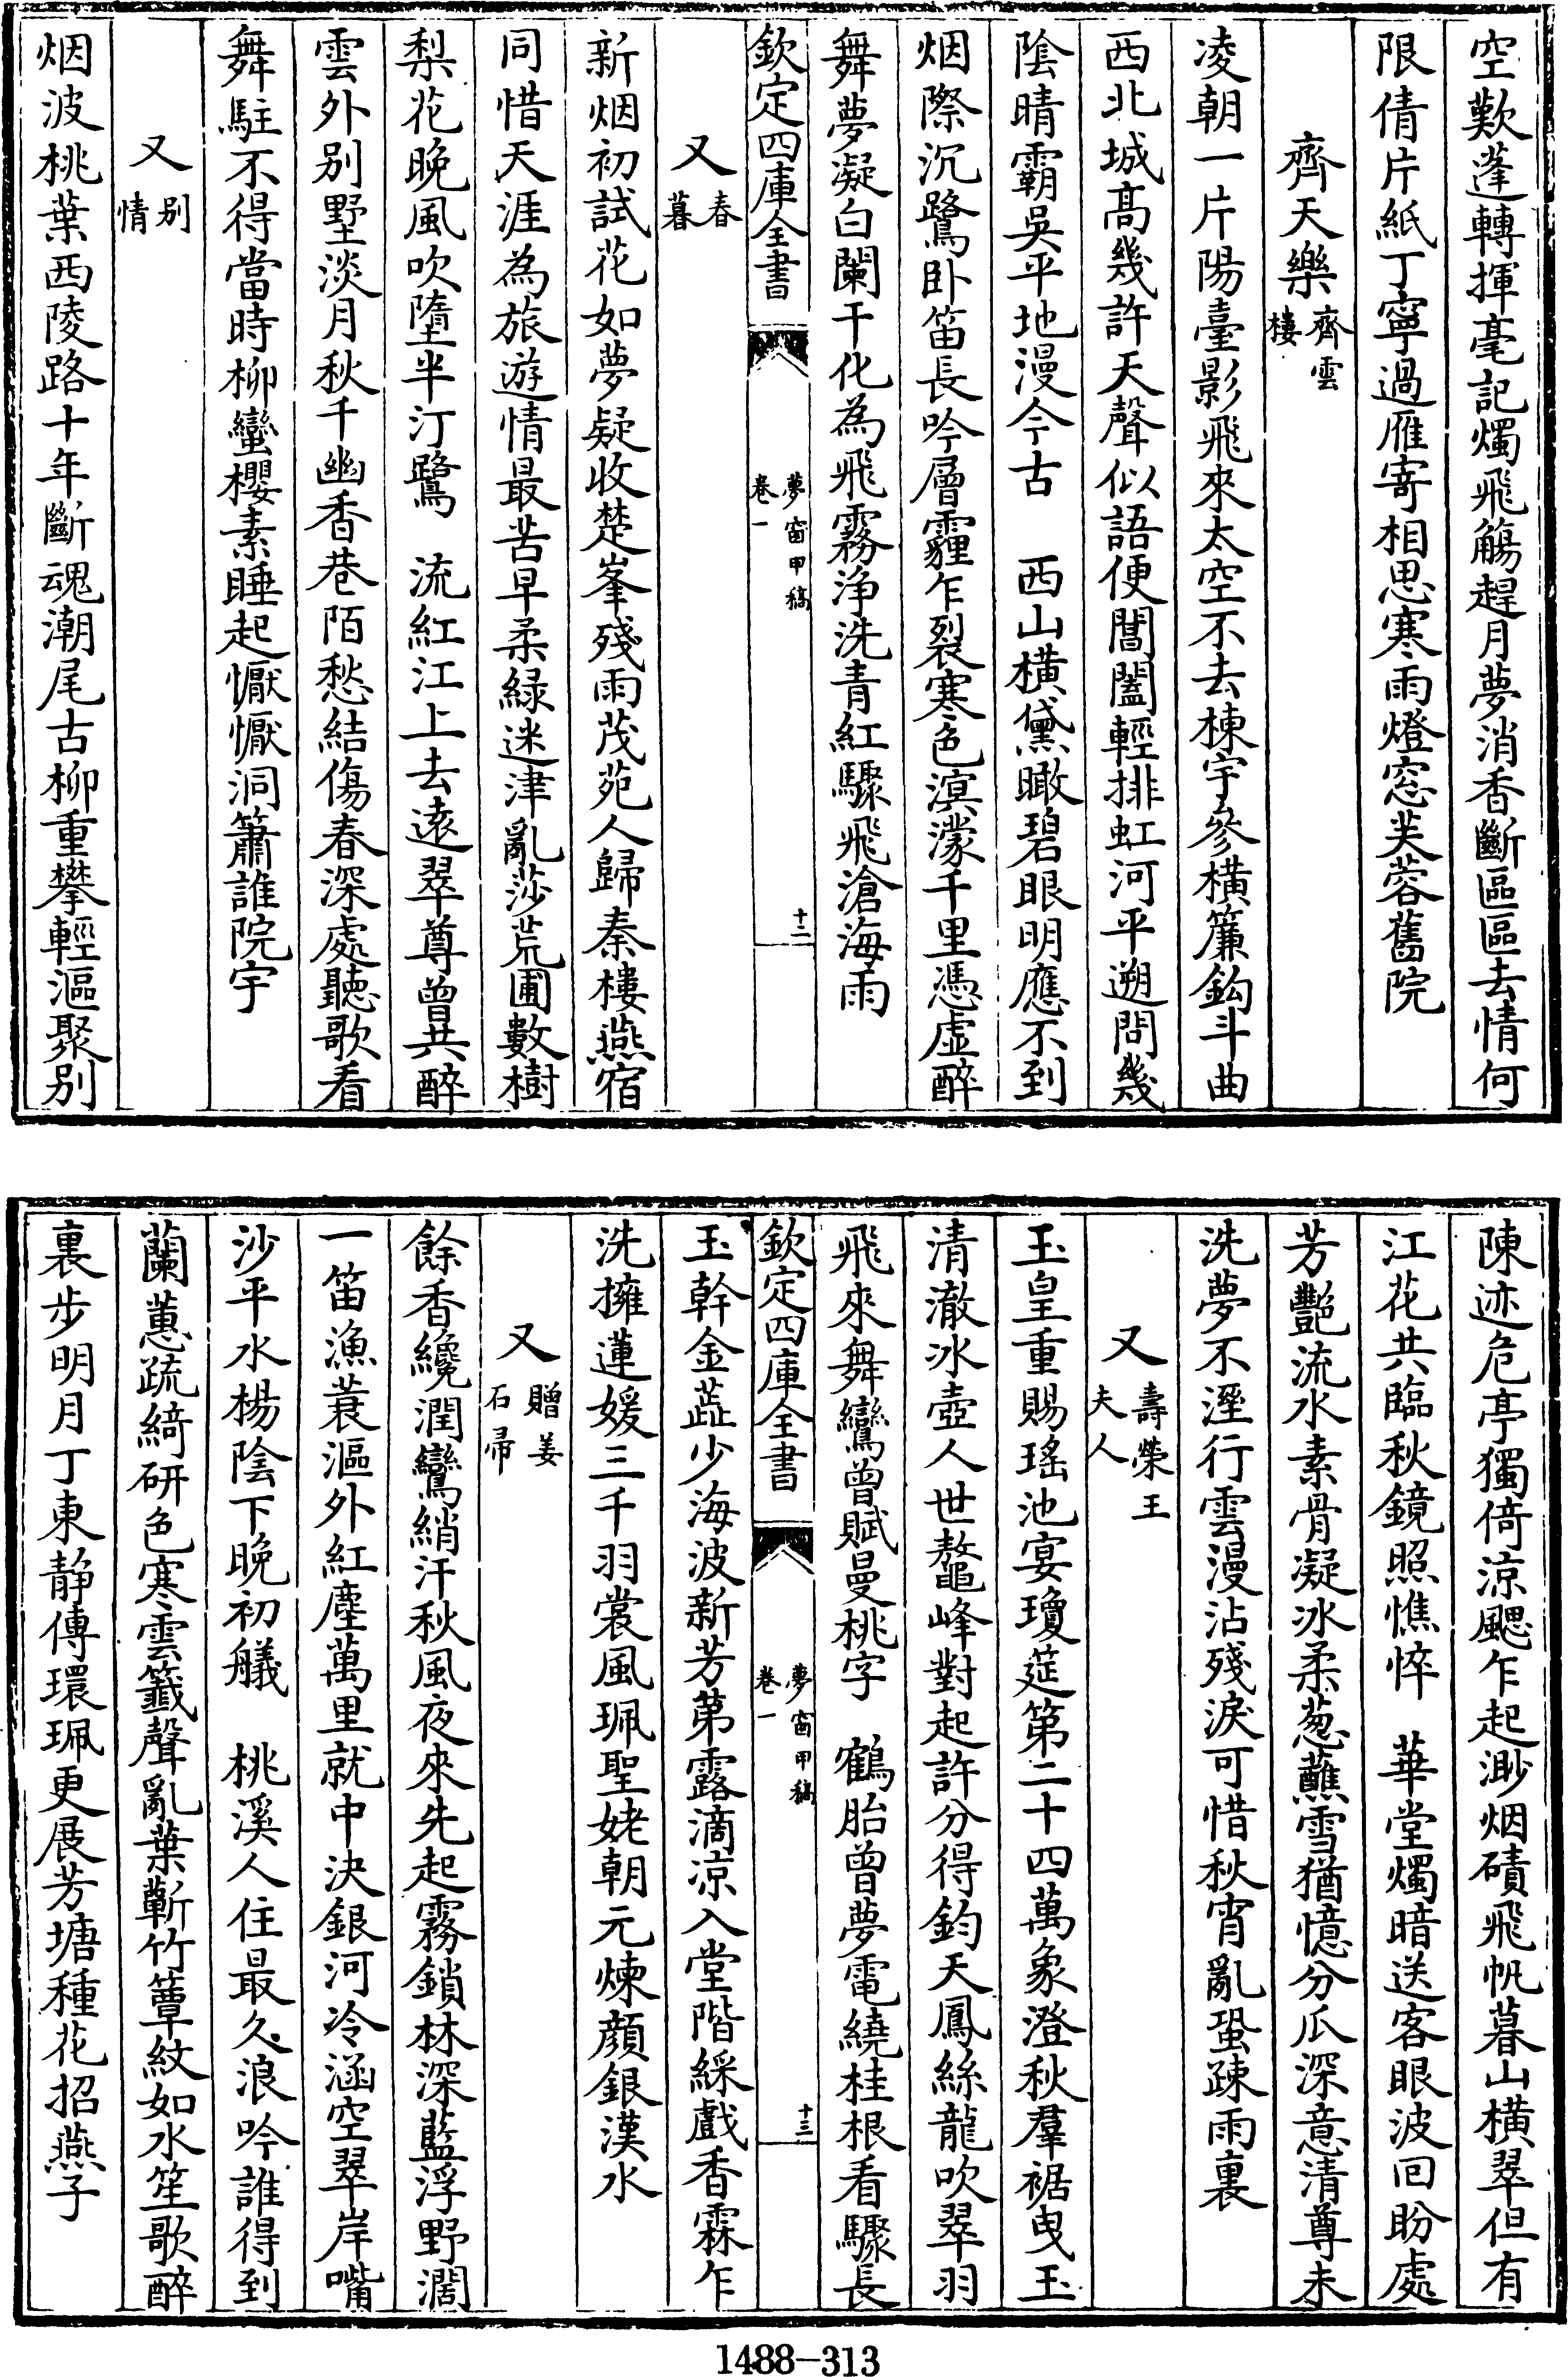 空歎蓬轉揮毫記燭飛觴趕月夢消香斷區區去情何
限倩片紙丁寧過雁寄相思寒雨燈窓芙蓉舊院
齊天樂齊雲樓
凌朝一片陽臺影飛來太空不去棟宇參橫簾鈎斗曲
西北城髙幾許天聲似語便閶闔輕排虹河平遡問幾
陰晴霸吳平地漫今古　西山橫黛瞰碧眼明應不到
烟際沉鷺卧笛長吟層霾乍裂寒色溟濛千里憑虛醉
舞夢凝白闌干化為飛霧浄洗青紅驟飛滄海雨
欽定四庫全書　夢窗甲稿卷一　十二
又春暮
新烟初試花如夢疑收楚峯殘雨茂苑人歸秦樓燕宿
同惜天涯為旅遊情最苦早柔緑迷津亂莎荒圃數樹
梨花晚風吹墮半汀鷺　流紅江上去逺翠尊曾共醉
雲外别墅淡月秋千幽香巷陌愁結傷春深處聽歌看
舞駐不得當時柳蠻櫻素睡起懨懨洞簫誰院宇
又别情
烟波桃葉西陵路十年斷魂潮尾古柳重攀輕漚聚别
陳迹危亭獨倚涼颸乍起渺烟磧飛帆暮山橫翠但有
江花共臨秋鏡照憔悴　華堂燭暗送客眼波回盼處
芳艷流水素骨凝冰柔葱蘸雪猶憶分瓜深意清尊未
洗夢不溼行雲漫沾殘淚可惜秋宵亂蛩疎雨裏
又壽榮王夫人
玉皇重賜瑤池宴瓊筵第二十四萬象澄秋羣裾曳玉
清澈冰壺人世鼇峰對起許分得鈞天鳳絲龍吹翠羽
飛來舞鸞曾賦曼桃字　鶴胎曾夢電繞桂根看驟長
欽定四庫全書　夢窗甲稿卷一　十三
玉幹金蕋少海波新芳茀露滴凉入堂階綵戲香霖乍
洗擁蓮媛三千羽裳風珮聖姥朝元煉顔銀漢水
又贈姜石帚
餘香纔潤鸞綃汗秋風夜來先起霧鎖林深藍浮野濶
一笛漁蓑漚外紅塵萬里就中決銀河冷涵空翠岸嘴
沙平水楊陰下晚初艤　桃溪人住最久浪吟誰得到
蘭蕙疏綺研色寒雲籤聲亂葉蘄竹簟紋如水笙歌醉
裏步明月丁東静傳環珮更展芳塘種花招燕子
1488-313